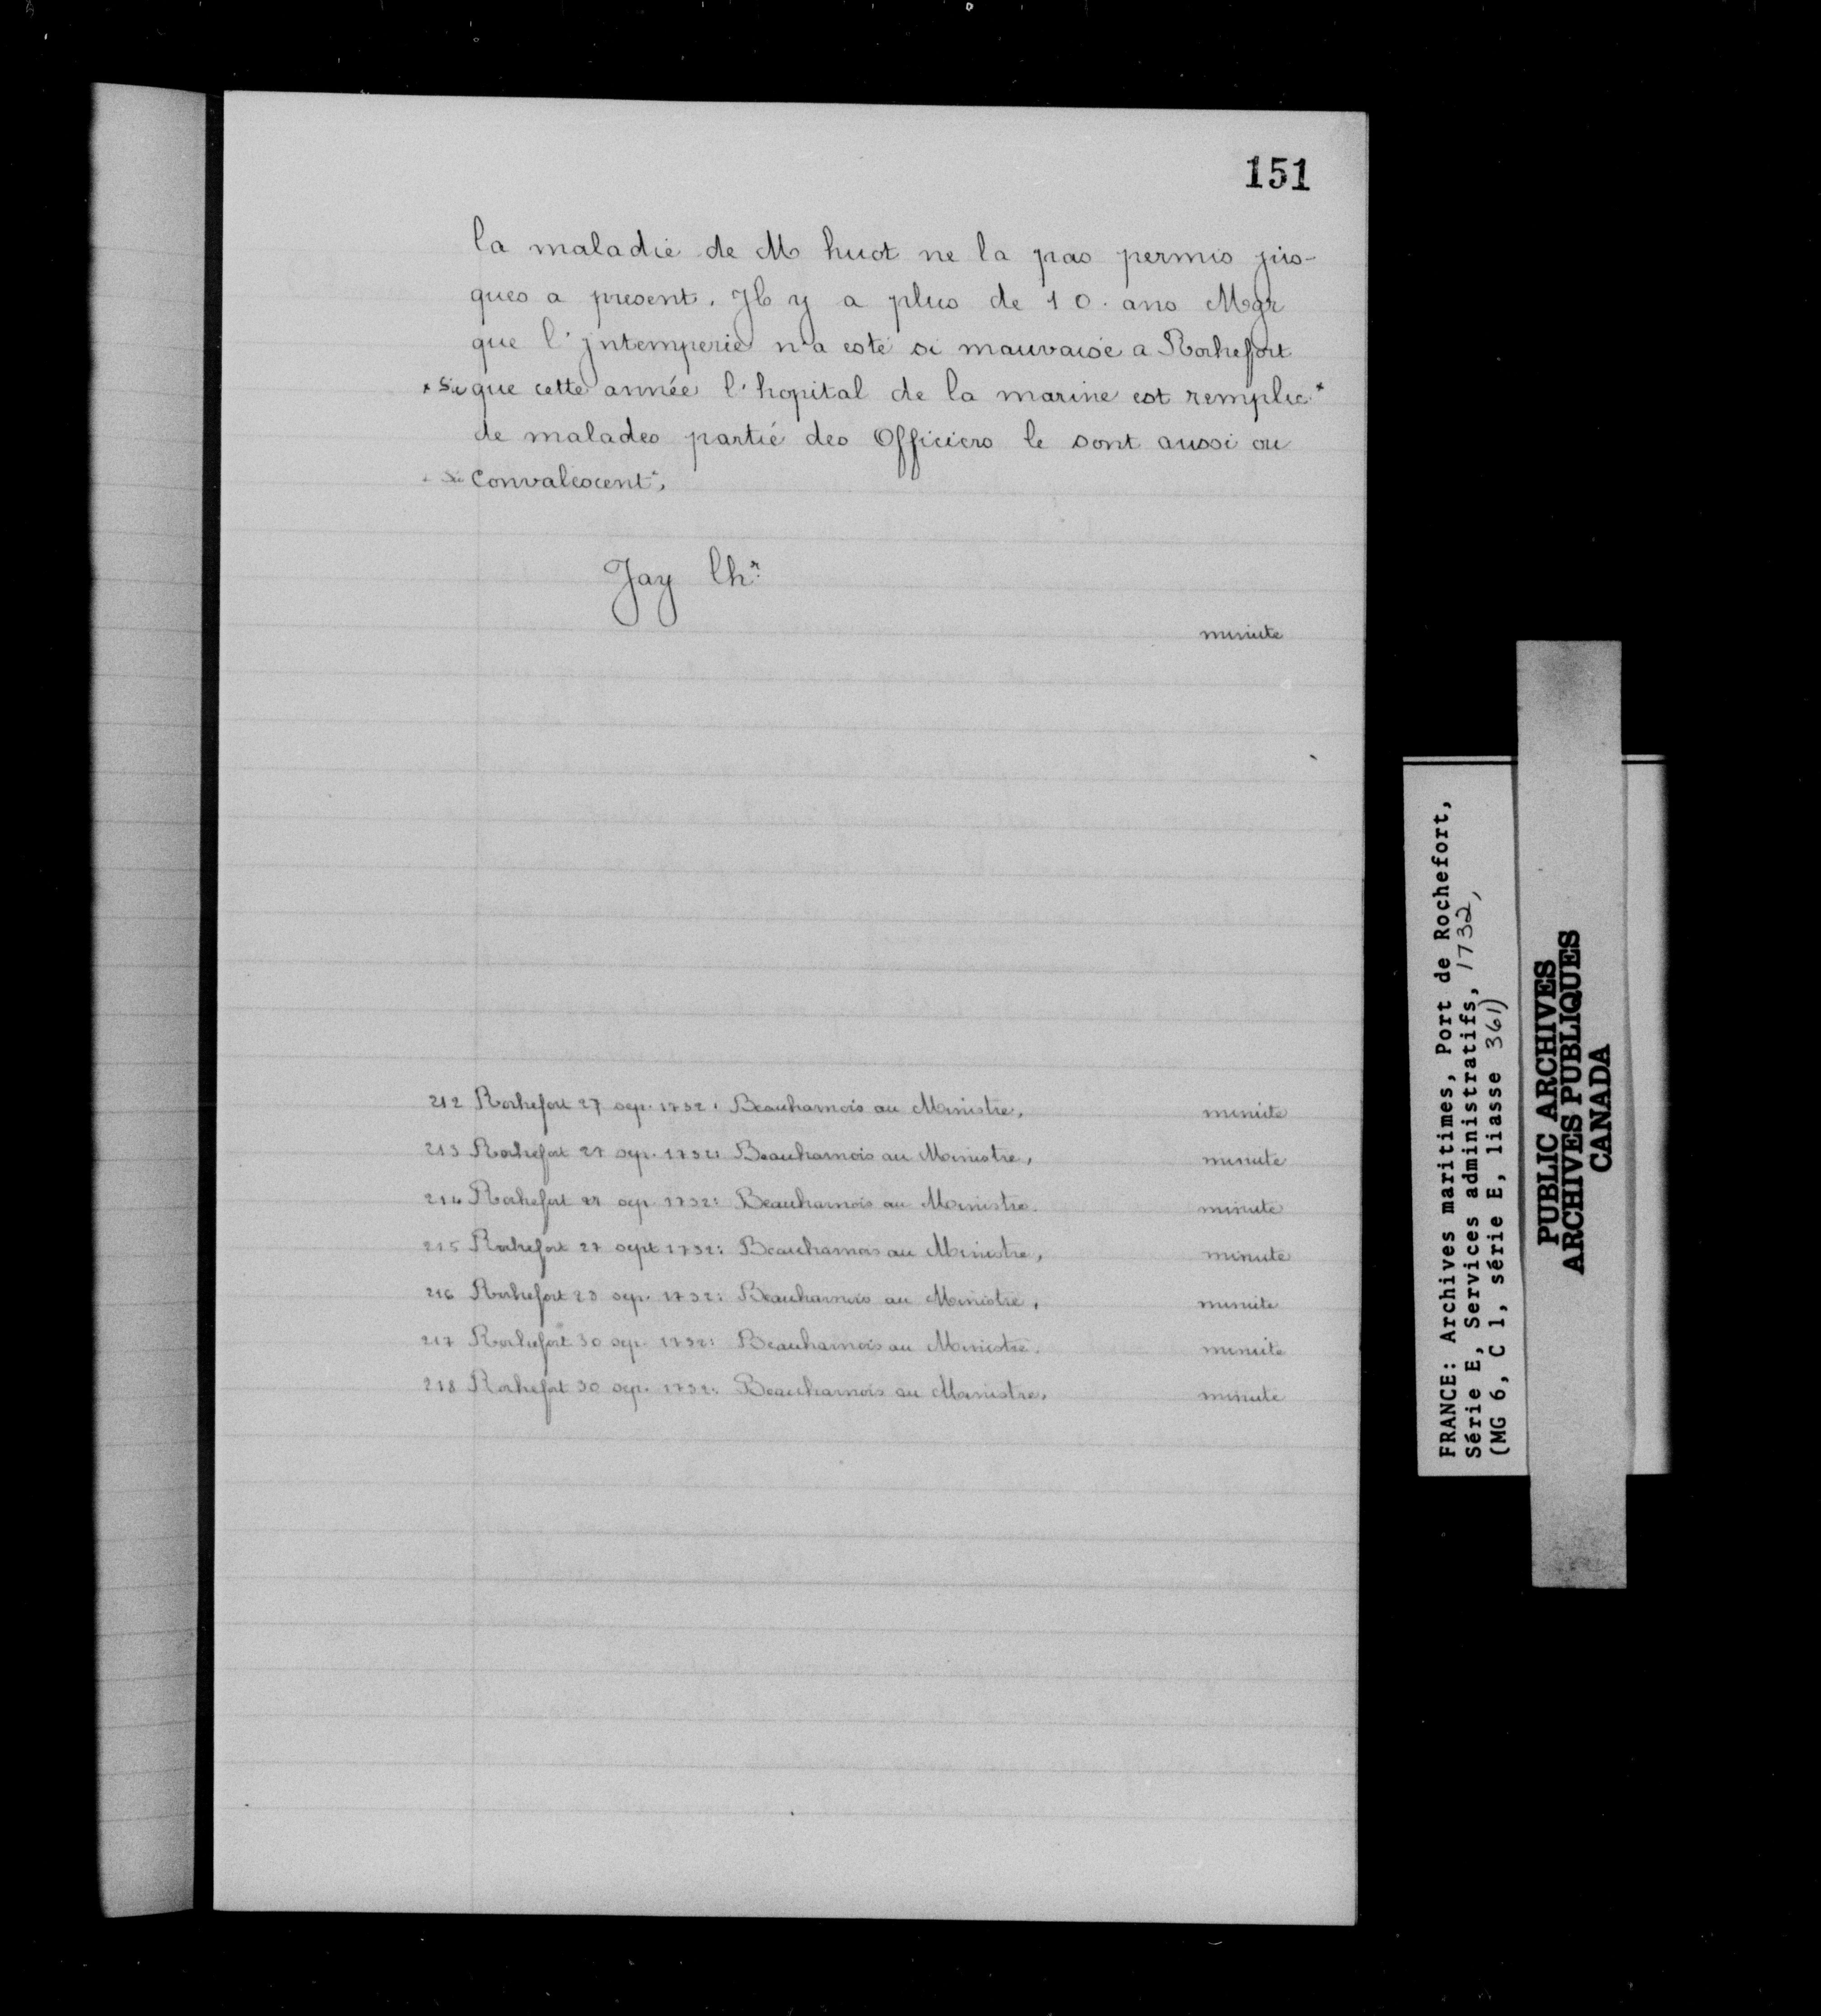 151
la maladie de M huot ne la pas permis jus-
ques a present. Jl y a plus de 10. ans Mgr
que l'jntemperie n'a esté si mauvaise a Rochefort
* Sic que cette année l'hopital de la marine est remplie *
de malades partie des Officiers le sont aussi ou
* Sic Convalescent*,
Jay lhr.
minute
212 Rochefort 27 sep. 1732. Beauharnois au Ministre, minute
213 Rochefort 27 sep. 1732: Beauharnois au Ministre, minute
214 Rochefort 27 sep 1732: Beauharnois au Ministre. minute
215 Rochefort 27 sept 1732: Beauharnois au Ministre, minute
216 Rochefort 28 sep. 1732: Beauharnois au Ministre, minute
217 Rochefort 30 sep. 1732: Beauharnois au Ministre. minute
218 Rochefort 30 sep. 1732: Beauharnois au Ministre, minute
FRANCE: Archives maritimes, Port de Rochefort,
Série E, Services administratifs, 1732,
(MG 6, C 1, série E, liasse 361)
PUBLIC ARCHIVES
ARCHIVES PUBLIQUES
CANADA